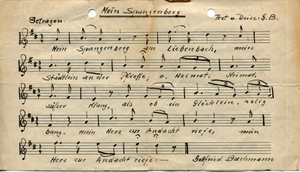 Mein Spangenberg
Getragen Text u. Weise: G. B.
Mein Spangenberg am Liebenbach, mein
Städtlein an der Pfieffe, o, Heimat, Heimat,
süßer Klang, als ob ein Glöcklein, selig
bang, mein Herz zur Andacht riefe, mein
Herz zur Andacht riefe.
Gottfried Bachmann